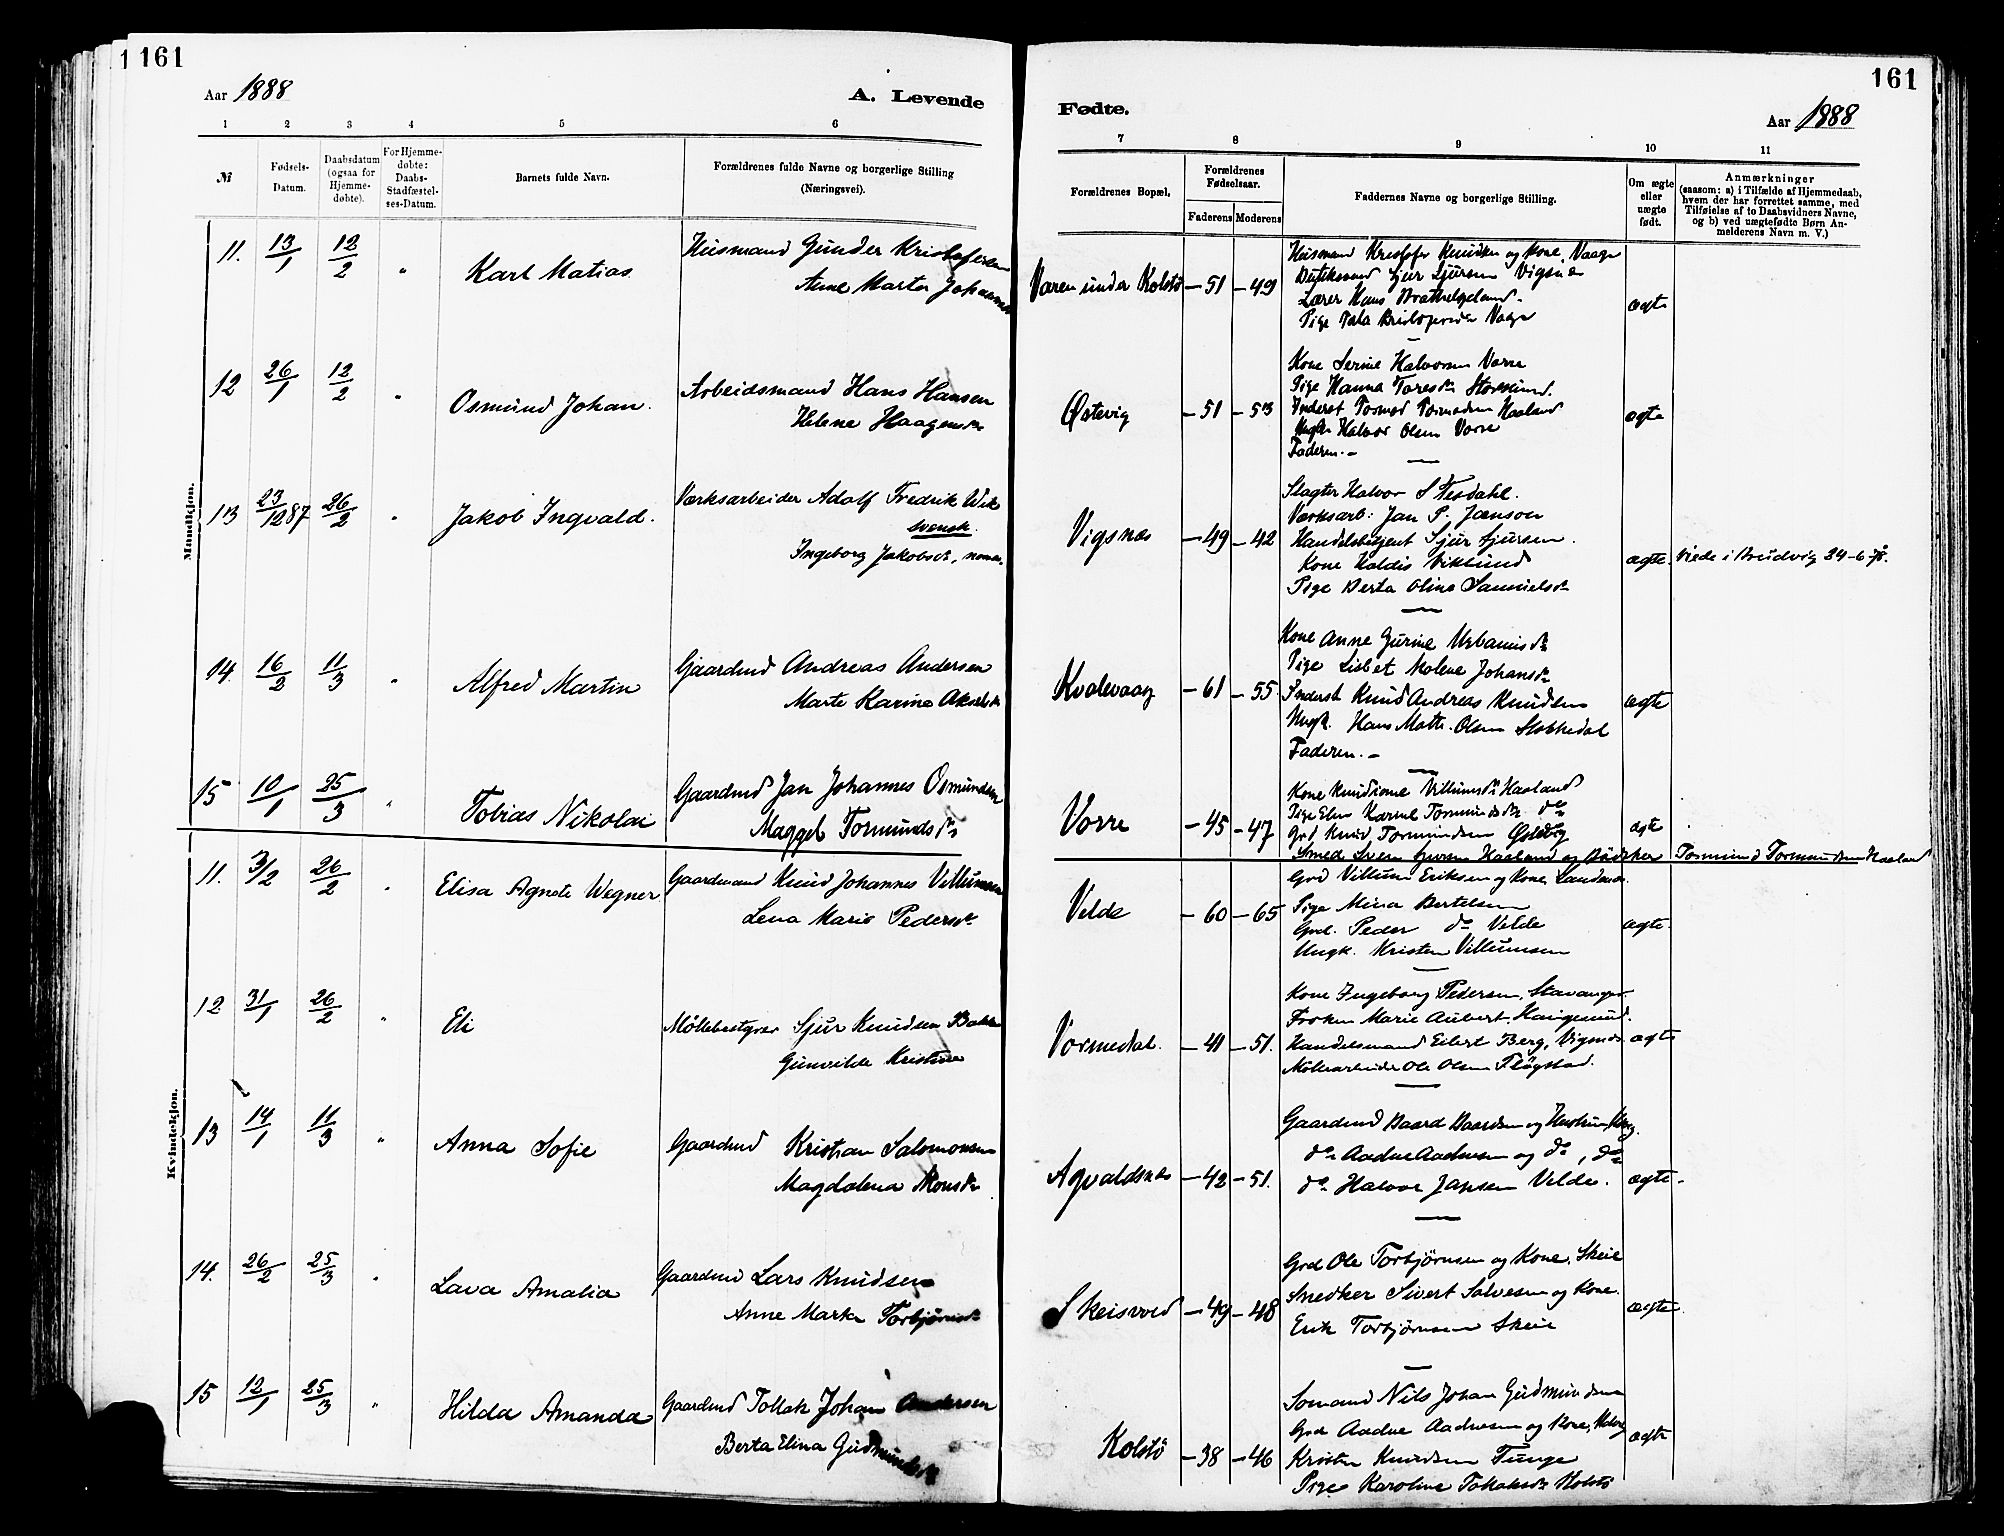 1 161
161
Aar 1888
A. Levende
Fødte.
Aar 1888
1 2 3 4 5 6 7 8 9 10 11
№
Fødsels-
Datum.
Daabsdatum
(ogsaa for
Hjemme-
døbte).
For Hjemme-
døbte:
Daabs-
Stadfæstel-
ses-Datum.
Barnets fulde Navn.
Forældrenes fulde Navne og borgerlige Stilling
(Næringsvei).
Forældrenes Bopæl,
Forældrenes
Fødselsaar.
Faderens Moderens
Faddernes Navne og borgerlige Stilling.
Om ægte
eller
uægte
født.
Anmærkninger
(saasom: a) i Tilfælde af Hjemmedaab,
hvem der har forrettet samme, med
Tilføielse af to Daabsvidners Navne,
og b) ved uægtefødte Børn An-
melderens Navn m. V.)
Mandkjøn.
11. 13/1 12/2 " Karl Matias
Husmand Gunder Kristofersen
Anne Marta
Varen under Kolstø – 51 – 49
Husmand Kristofer Knudsen og Kone, Vaage
Sjur Sjursen Vigsnæs
Lærer Hans
Pige
ægte
12 26/1 12/2 " Osmund Johan.
Arbeidsmand Hans Hansen
Helene Haagensdr
Østevig – 51 – 53
Kone Serine Halvorsen Vorre
Pige Hanna Toresdr Storesund.
Inderst Tormod Tormodsen Haaland
Ungk. Halvor Olsen Vorre
Faderen. –
ægte
13 23/12 87 26/2 " Jakob Ingvald.
Værksarbeider Adolf Fredrik Wik
svensk.
Ingeborg Jakobsdr, norsk.
Vigsnæs – 49 – 42
Slagter Halvor S Tesdahl.
Værksarb: Jan P. Jænson
Sjur Sjursen.
Kone Haldis Viklund
Pige Berta Olina Samuelsdr
ægte. Viede i 24-6-78.
14. 16/2 11/3 " Alfred Martin
Gaardmd Andreas Andersen
Marte Karine Akselsdr
Kvalevaag – 61 – 55
Kone Anne Gurine Urbanusdr
Pige Lisbet Malene Johansdr
Inderst Knud Andreas Knudsen
Ungk. Hans Matt. Olsen Stokkedal
Faderen. –
ægte
15 10/1 25/3 " Tobias Nikolai
Gaardmd Jan Johannes Osmundsen
Maggel Tormundsdr
Vorre – 45 – 47
Kone Villumsdr Haaland
Pige Elen Karine Tormundsdr do
Grd Knud Tormundsen Østevig
Smed Sven Haaland og Bødker Tormund Tormundsen Haaland
ægte
Kvindekjøn.
11. 3/2 26/2 " Elisa Agnete Wegner
Gaardmand Knud Johannes Villumsen
Lena Marie Pedersdr
Velde – 60 – 65
Grd Villum Eriksen og Kone,
Pige Mina Bertelsen
Grd. Peder do Velde
Ungk. Kristen Villumsen
ægte.
12 31/1 26/2 " Eli
Møllebestyrer Sjur Knudsen Bakke
Gunvilde Kristine
Vormedal. – 41 – 51.
Kone Ingeborg Pedersen, Stavanger.
Frøken Marie Aubert, Haugesund.
Handelsmand Eilert Berg, Vigsnæs
Møllearbeider Ole Olsen Fløgstad.
ægte
13 14/1 11/3 " Anna Sofie
Gaardmd Kristian Salomonsen
Magdalena Monsdr
Agvaldsnæs – 42 – 51.
Gaardmd Baard Baardsen og Hustru,
do Aadne Aadnesen og do, do
do Halvor Jansen Velde.
ægte.
14. 26/2 25/3 " Lava Amalia
Gaardmd Lars Knudsen
Anne Marta Torbjørnsdr
Skeisvold – 49 – 48
Grd Ole Torbjørnsen og Kone, Skeie
Snedker Sivert Salvesen og Kone.
Erik Torbjørnsen Skeie
ægte
15 12/1 25/3 " Hilda Amanda
Gaardmd Tollak Johan Andersen
Berta Elina Gudmundsdr
Kolstø – 38 – 46
Sømand Nils Johan Gudmundsen
Grd Aadne Aadnesen og Kone,
Kristen Knudsen Tunge
Pige Karoline Tollaksdr Kolstø
ægte